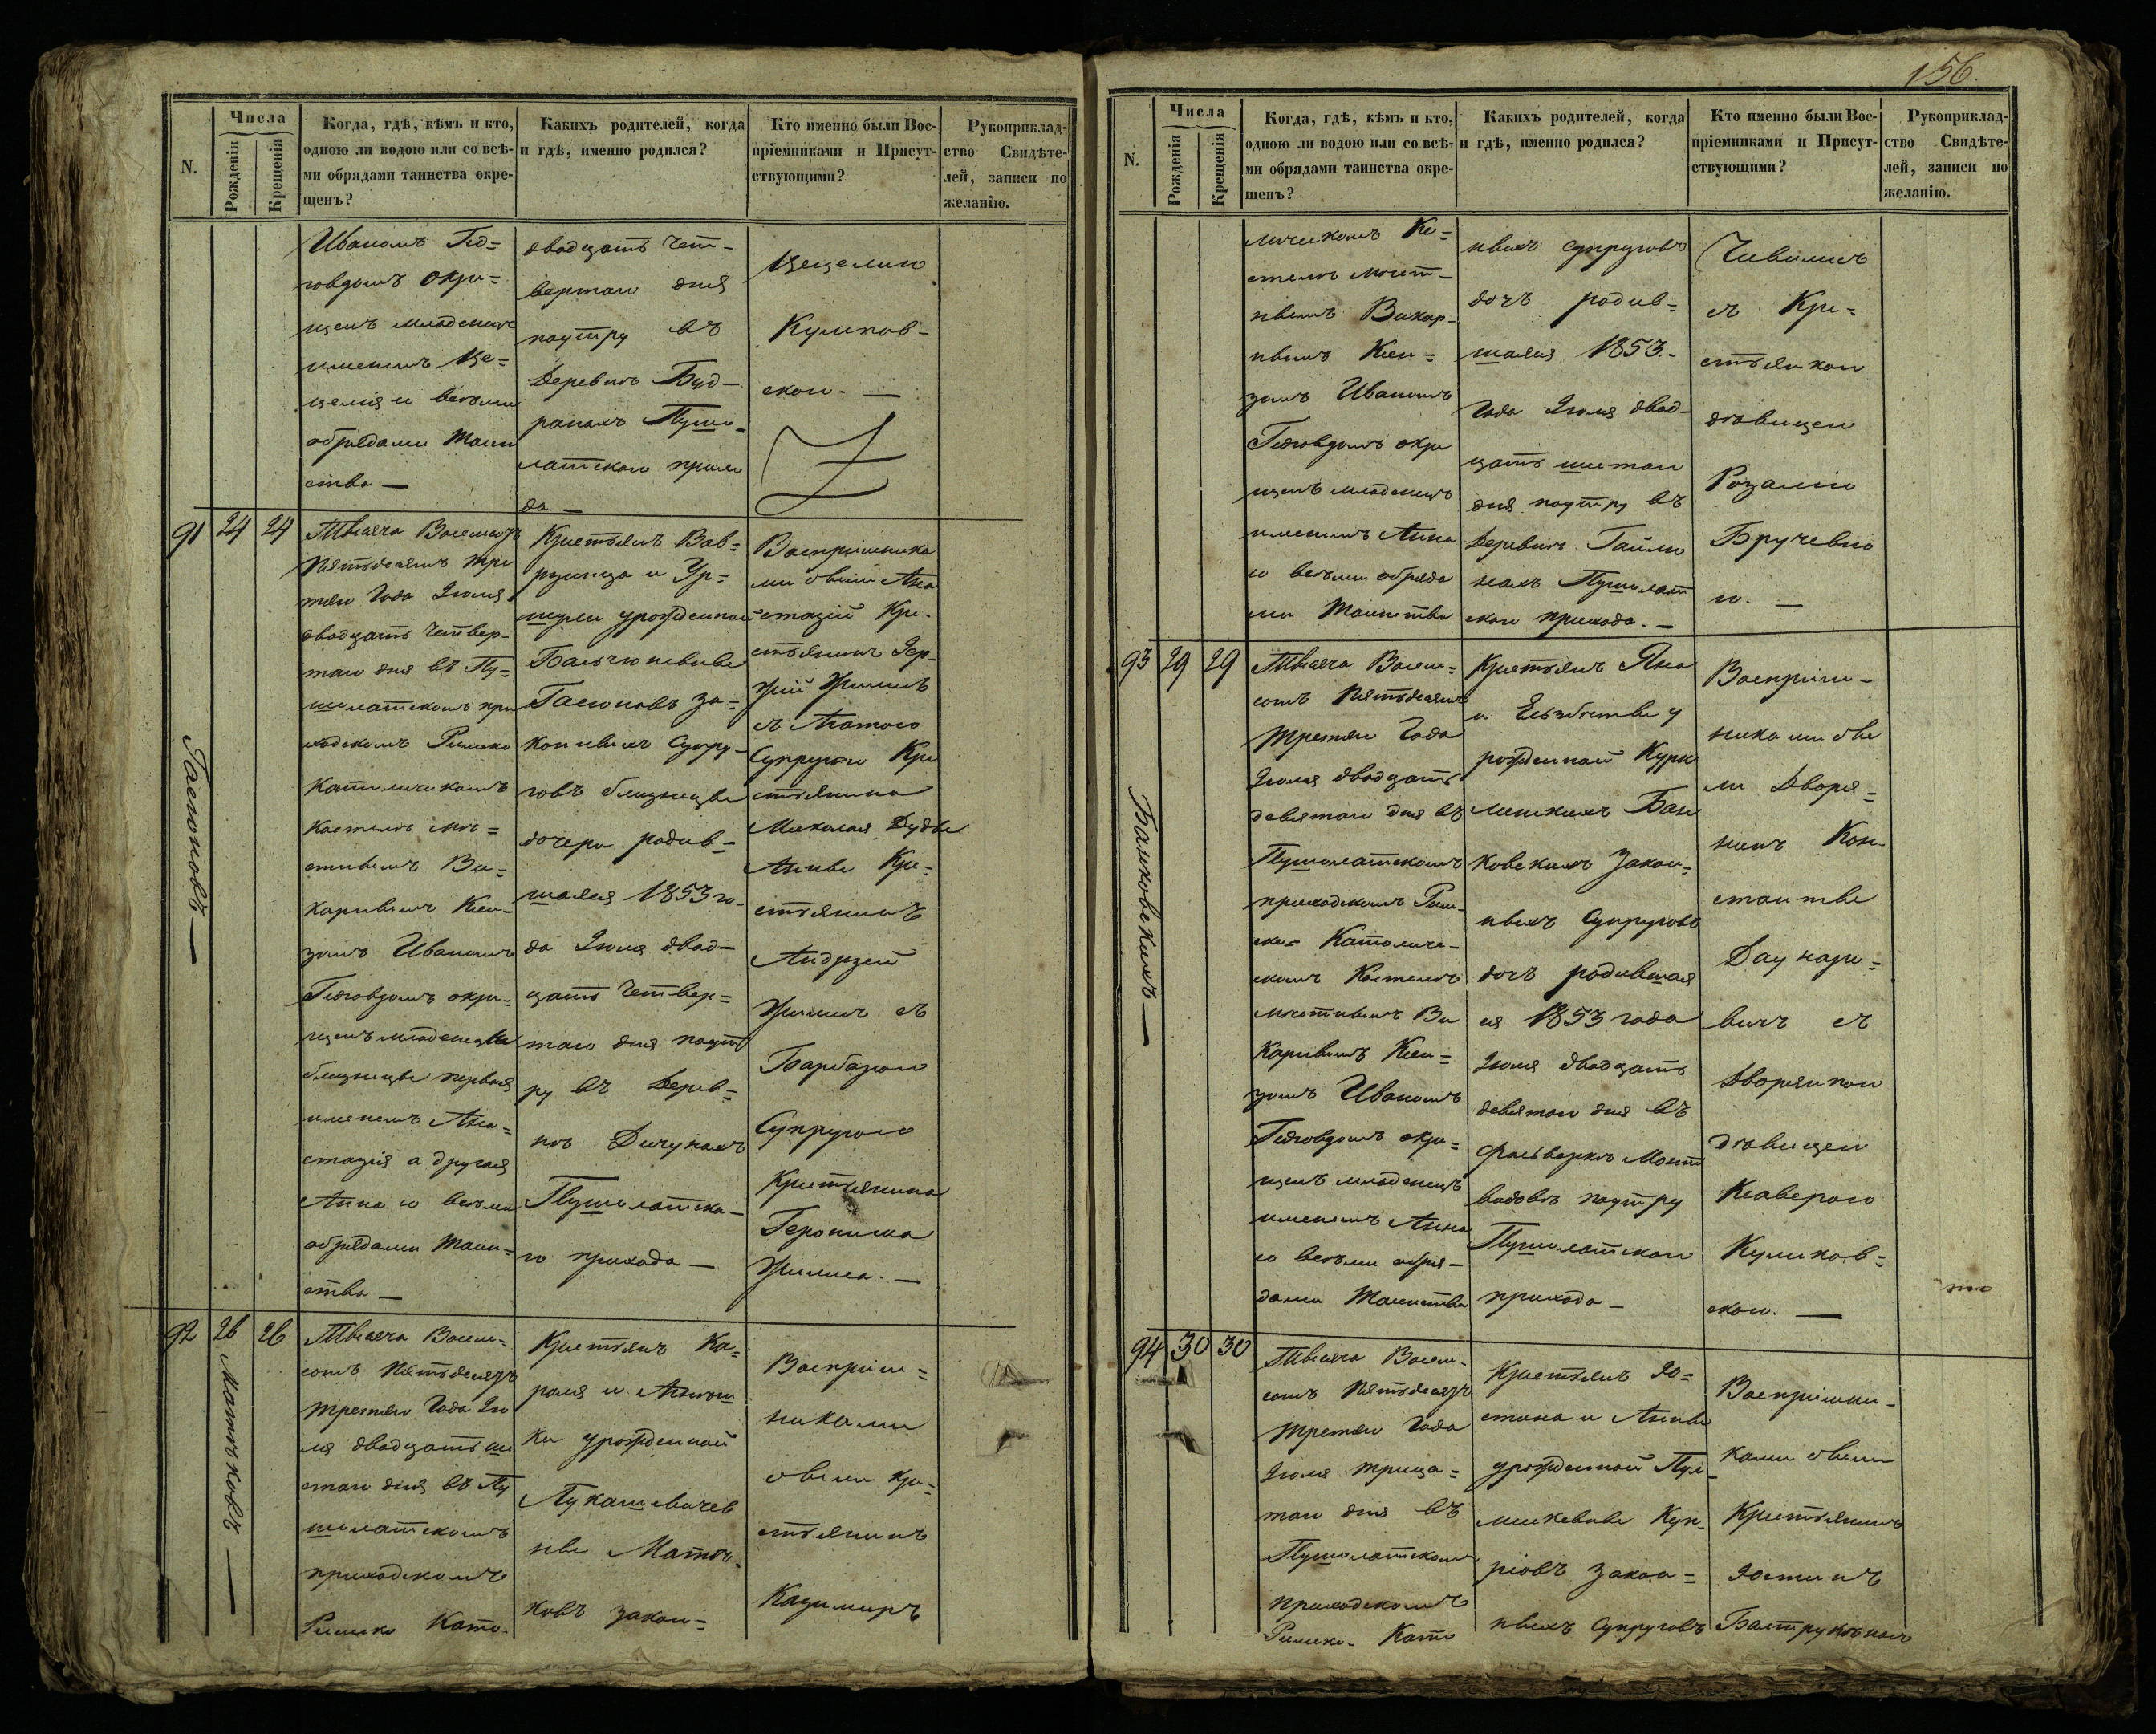 N.
Числа
Рожденія
Крещенія
Когда, гдѣ, кѣмъ и кто,
одною ли водою или со всѣ-
ми обрядами таинства окре-
щенъ?
Какихъ родителей, когда
и гдѣ, именно родился?
Кто именно были Вос-
пріемниками и Присут-
ствующими?
Рукоприклад-
ство Свидѣте-
лей, записи по
желанію.
Иваномъ
говдомъ окре=
щенъ младенецъ
именемъ Це=
целія и всѣми
обрядами Таин
ства —
двадцать Чет-
вертаго дня
поутру въ
Деревнѣ Буд-
ранахъ Пушо-
латскаго прихо
да —
Цецелию
Куликов-
скою. —
91
24
24
Гасюновъ —
Тысяча Восемсотъ
Пятьдесятъ тре
тяго Года Іюля
двадцать Четвер-
таго дня въ Пу-
шолатскомъ при
ходскомъ Римско
Католическомъ
Костелѣ мѣ=
стнымъ Ви-
карнымъ Ксен-
дзомъ Иваномъ
окре=
щенъ младенцы
близнецы первая
именемъ Ана=
стазія а другая
Анна со всѣми
обрядами Таин=
ства —
Крестьянъ Вав=
ржинца и Ур=
шули урожденной
Гасюновъ За=
конныхъ Супру-
говъ близнецы
дочери родив-
шаяся 1853 го-
да Іюля двад-
цать Четвер=
таго дня поут
ру въ Дерев=
нѣ Дичунахъ
Пушолатска-
го прихода —
Воспріемника
ми были Ана
стазіи Кре-
стьянинъ
съ Агатою
Супругою Кре
стьянина
Николая
Анны Кре=
стьянинъ
Андржей
съ
Барбарою
Супругою
Крестьянина
Геронима
92
26
26
Тысяча Восем-
сотъ Пятьдесятъ
третяго Года Ію
ля двадцать ше
стаго дня въ Пу
шолатскомъ
приходскомъ
Римско Като-
Крестьянъ Ка=
роля и
ки урожденной
Лукашевичев
ны
ковъ закон=
Воспріем=
никами
были Кре=
стьянинъ
Казимиръ
156.
N.
Числа
Рожденія
Крещенія
Когда, гдѣ, кѣмъ и кто,
одною ли водою или со всѣ-
ми обрядами таинства окре-
щенъ?
Какихъ родителей, когда
и гдѣ, именно родился?
Кто именно были Вос-
пріемниками и Присут-
ствующими?
Рукоприклад-
ство Свидѣте-
лей, записи по
желанію.
лическомъ Ко=
стелѣ мѣст-
нымъ Викар-
нымъ Ксен=
дзомъ Иваномъ
окре
щенъ младенецъ
именемъ Анна
со всѣми обряда
ми Таинства
ныхъ супруговъ
дочь родив=
шаяся 1853.-
Года Іюля двад-
цать шестаго
дня поутру въ
Деревнѣ Гайлю
нахъ Пушолат
скаго прихода. —
съ Кре=
стьянкою
дѣвицею
Розалію
Бручевно
ю. —
93
29
29
Банковскихъ —
Тысяча Восем=
сотъ Пятьдесятъ
Третяго Года
Іюля двадцать
девятаго дня въ
Пушолатскомъ
приходскомъ Рим-
ско= Католиче-
скомъ Костелѣ
мѣстнымъ Ви
карнымъ Ксен=
дзомъ Иваномъ
окре=
щенъ младенецъ
именемъ Анна
со всѣми обря-
дами Таинства
Крестьянъ Яна
и Ельзбѣты у
рожденной Курк
Бан
ковскихъ Закон=
ныхъ Супруговъ
дочь родившая
ся 1853 года
Іюля двадцать
девятаго дня въ
фольваркѣ Монт
видовѣ поутру
Пушолатскаго
прихода —
Воспріем-
никами бы
ли Дворя=
нинъ Кон-
стантый
вичъ съ
Дворянкою
дѣвицею
Ксаверою
Куликов=
скою. —
94
30
30
Тысяча Восем-
сотъ Пятьдесятъ
Третяго Года
Іюля трица=
таго дня въ
Пушолатскомъ
приходскомъ
Римско- Като
Крестьянъ Ю=
стина и Анны
урожденной
ріовъ Закон=
ныхъ Супруговъ
Воспріемни-
ками были
Крестьянинъ
Юстинъ